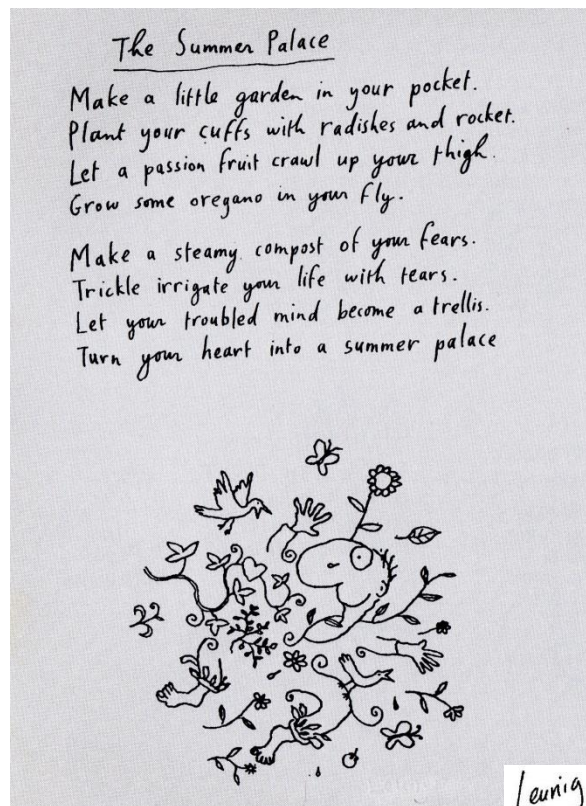 The Summer Palace
Make a little garden in your pocket.
Plant your cuffs with radishes and rocket.
Let a passion fruit crawl up your thigh.
Grow some oregano in your fly.
Make a steamy compost of your fears.
Trickle irrigate your life with tears.
Let your troubled mind become a trellis.
Turn your heart into a summer palace
leunig